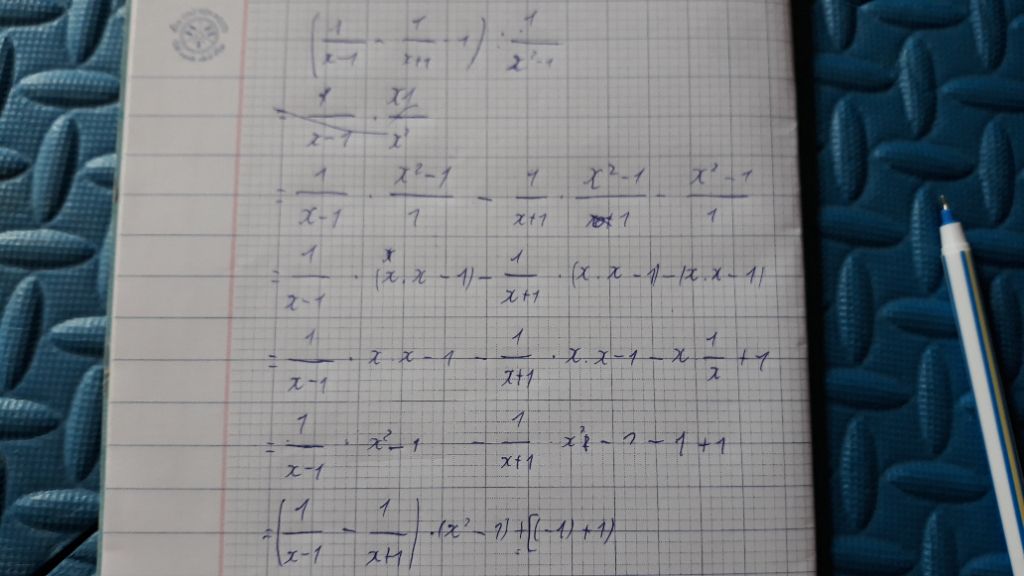 (1/(x-1) - 1/(x+1) - 1) : 1/(x²-1)
= 1/(x-1) · x1/x²
= 1/(x-1) · (x²-1)/1 - 1/(x+1) · (x²-1)/1 - (x²-1)/1
= 1/(x-1) · (x·x-1) - 1/(x+1) · (x·x-1) - (x·x-1)
= 1/(x-1) · x·x-1 - 1/(x+1) · x·x-1 - x · 1/x + 1
= 1/(x-1) · x²-1 - 1/(x+1) · x²-1-1+1
= (1/(x-1) - 1/(x+1)) · (x²-1) + [(-1)+1)